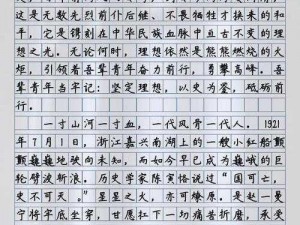 这是无数先烈前仆后继、不畏牺牲才换来的和
平，它是镌刻在中华民族血脉中亘古不变的理
想之光。无论何时，理想依然是熊熊燃烧的火
炬，引领着吾辈青年奋力前行，勇攀高峰。吾
辈青年当牢记：坚定理想，以史为鉴，砥砺前
行。
一寸山河一寸血，一代风骨一代人。1921
年7月1日，浙江嘉兴南湖上的一艘小红船颤
颤巍巍地驶向未知，而如今早已成为巍巍的巨
轮劈波斩浪。历史学家陈寅恪说过“国可亡，
史不可灭。”星星之火，亦可燎原。是赵一曼
宁将牢底坐穿，甘愿扛下一切痛苦折磨，承受